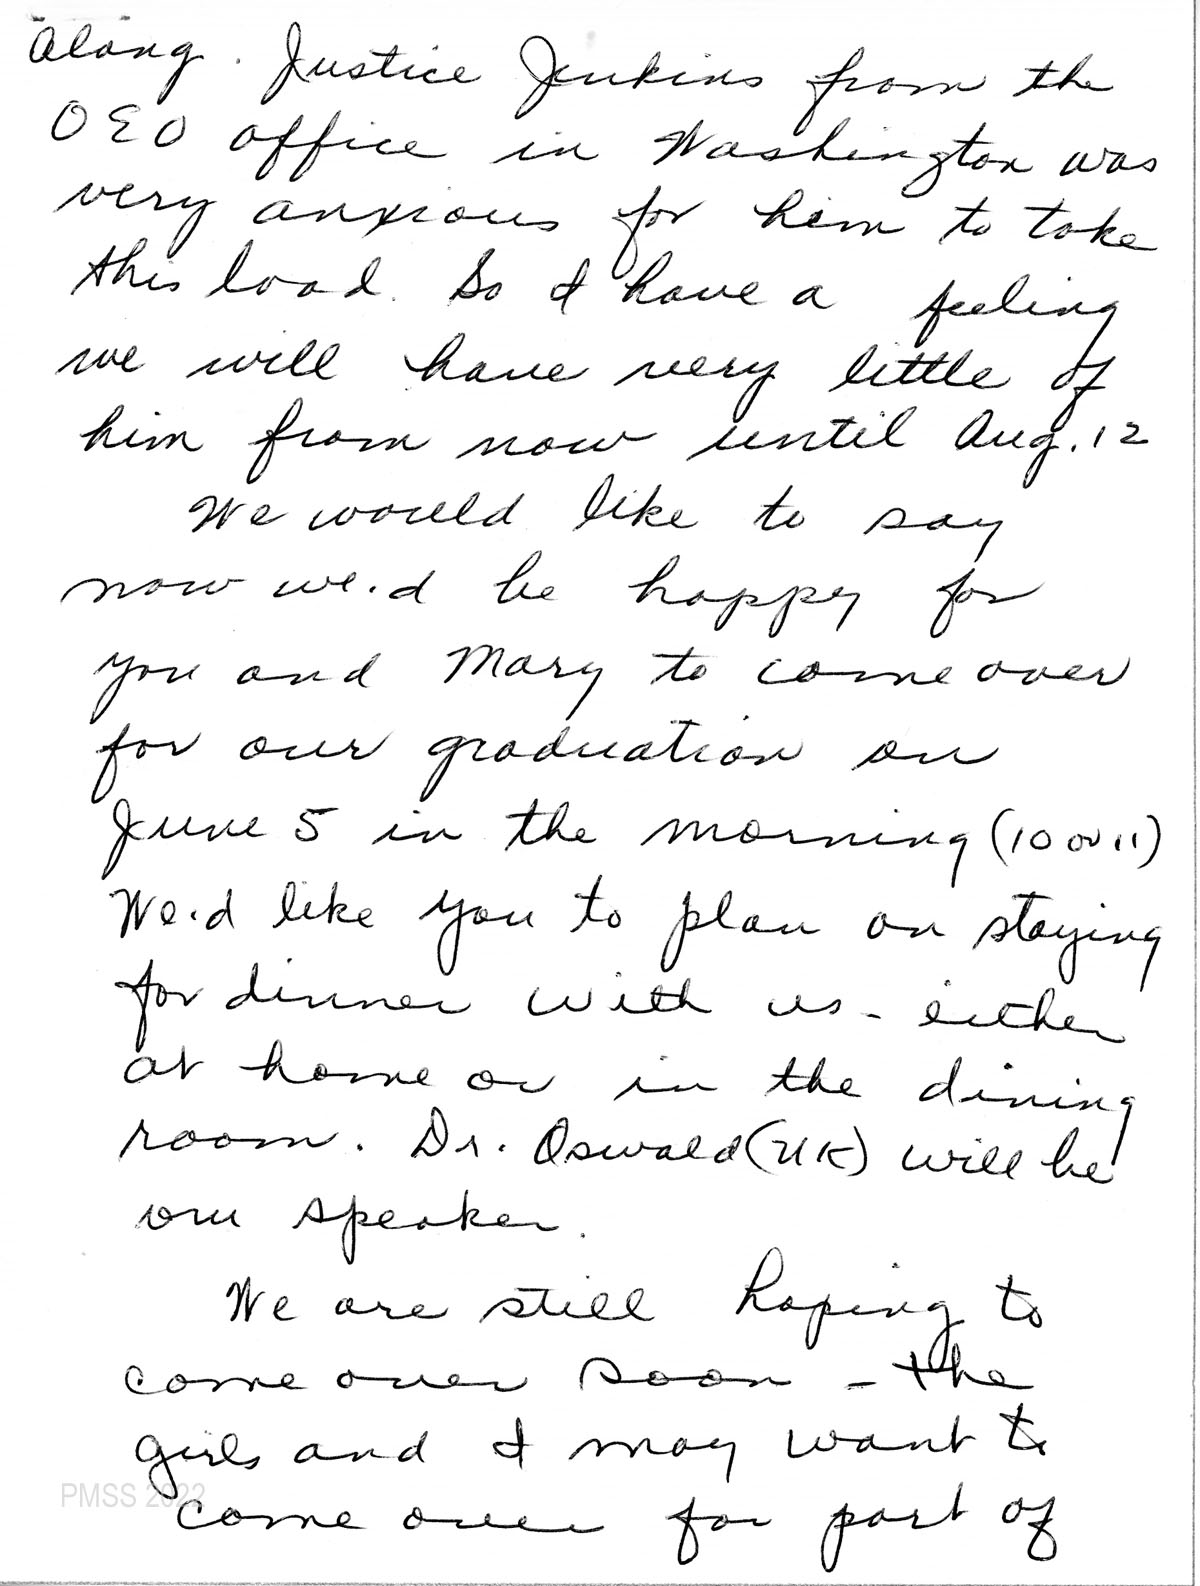 along. Justice Jenkins from the
OEO office in Washington was
very anxious for him to take
this load. So I have a feeling
we will have very little of
him from now until Aug. 12
We would like to say
now we'd be happy for
you and Mary to come over
for our graduation on
June 5 in the morning (10 or 11)
We'd like you to plan on staying
for dinner with us - either
at home or in the dining
room. Dr. Oswald (UK) will be
our speaker.
We are still hoping to
come over soon - the
girls and I may want to
come over for part of
PMSS 2022